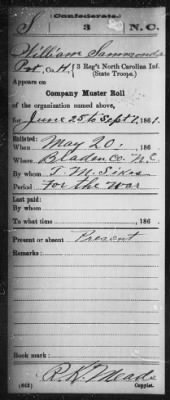 Confederate.
S 3 N.C.
William Sammonds
Pvt., Co. H, 3 Reg't North Carolina Inf.
(State Troops.)
Appears on
Company Muster Roll
of the organization named above,
for June 25 to Sept 1, 1861.
Enlisted:
When May 20, 186 .
Where Bladen Co. N.C.
By whom T. M. Sikes
Period For the War
Last paid:
By whom
To what time , 186 .
Present or absent Present
Remarks:
Book mark:
R. K. Meade
(642) Copyist.